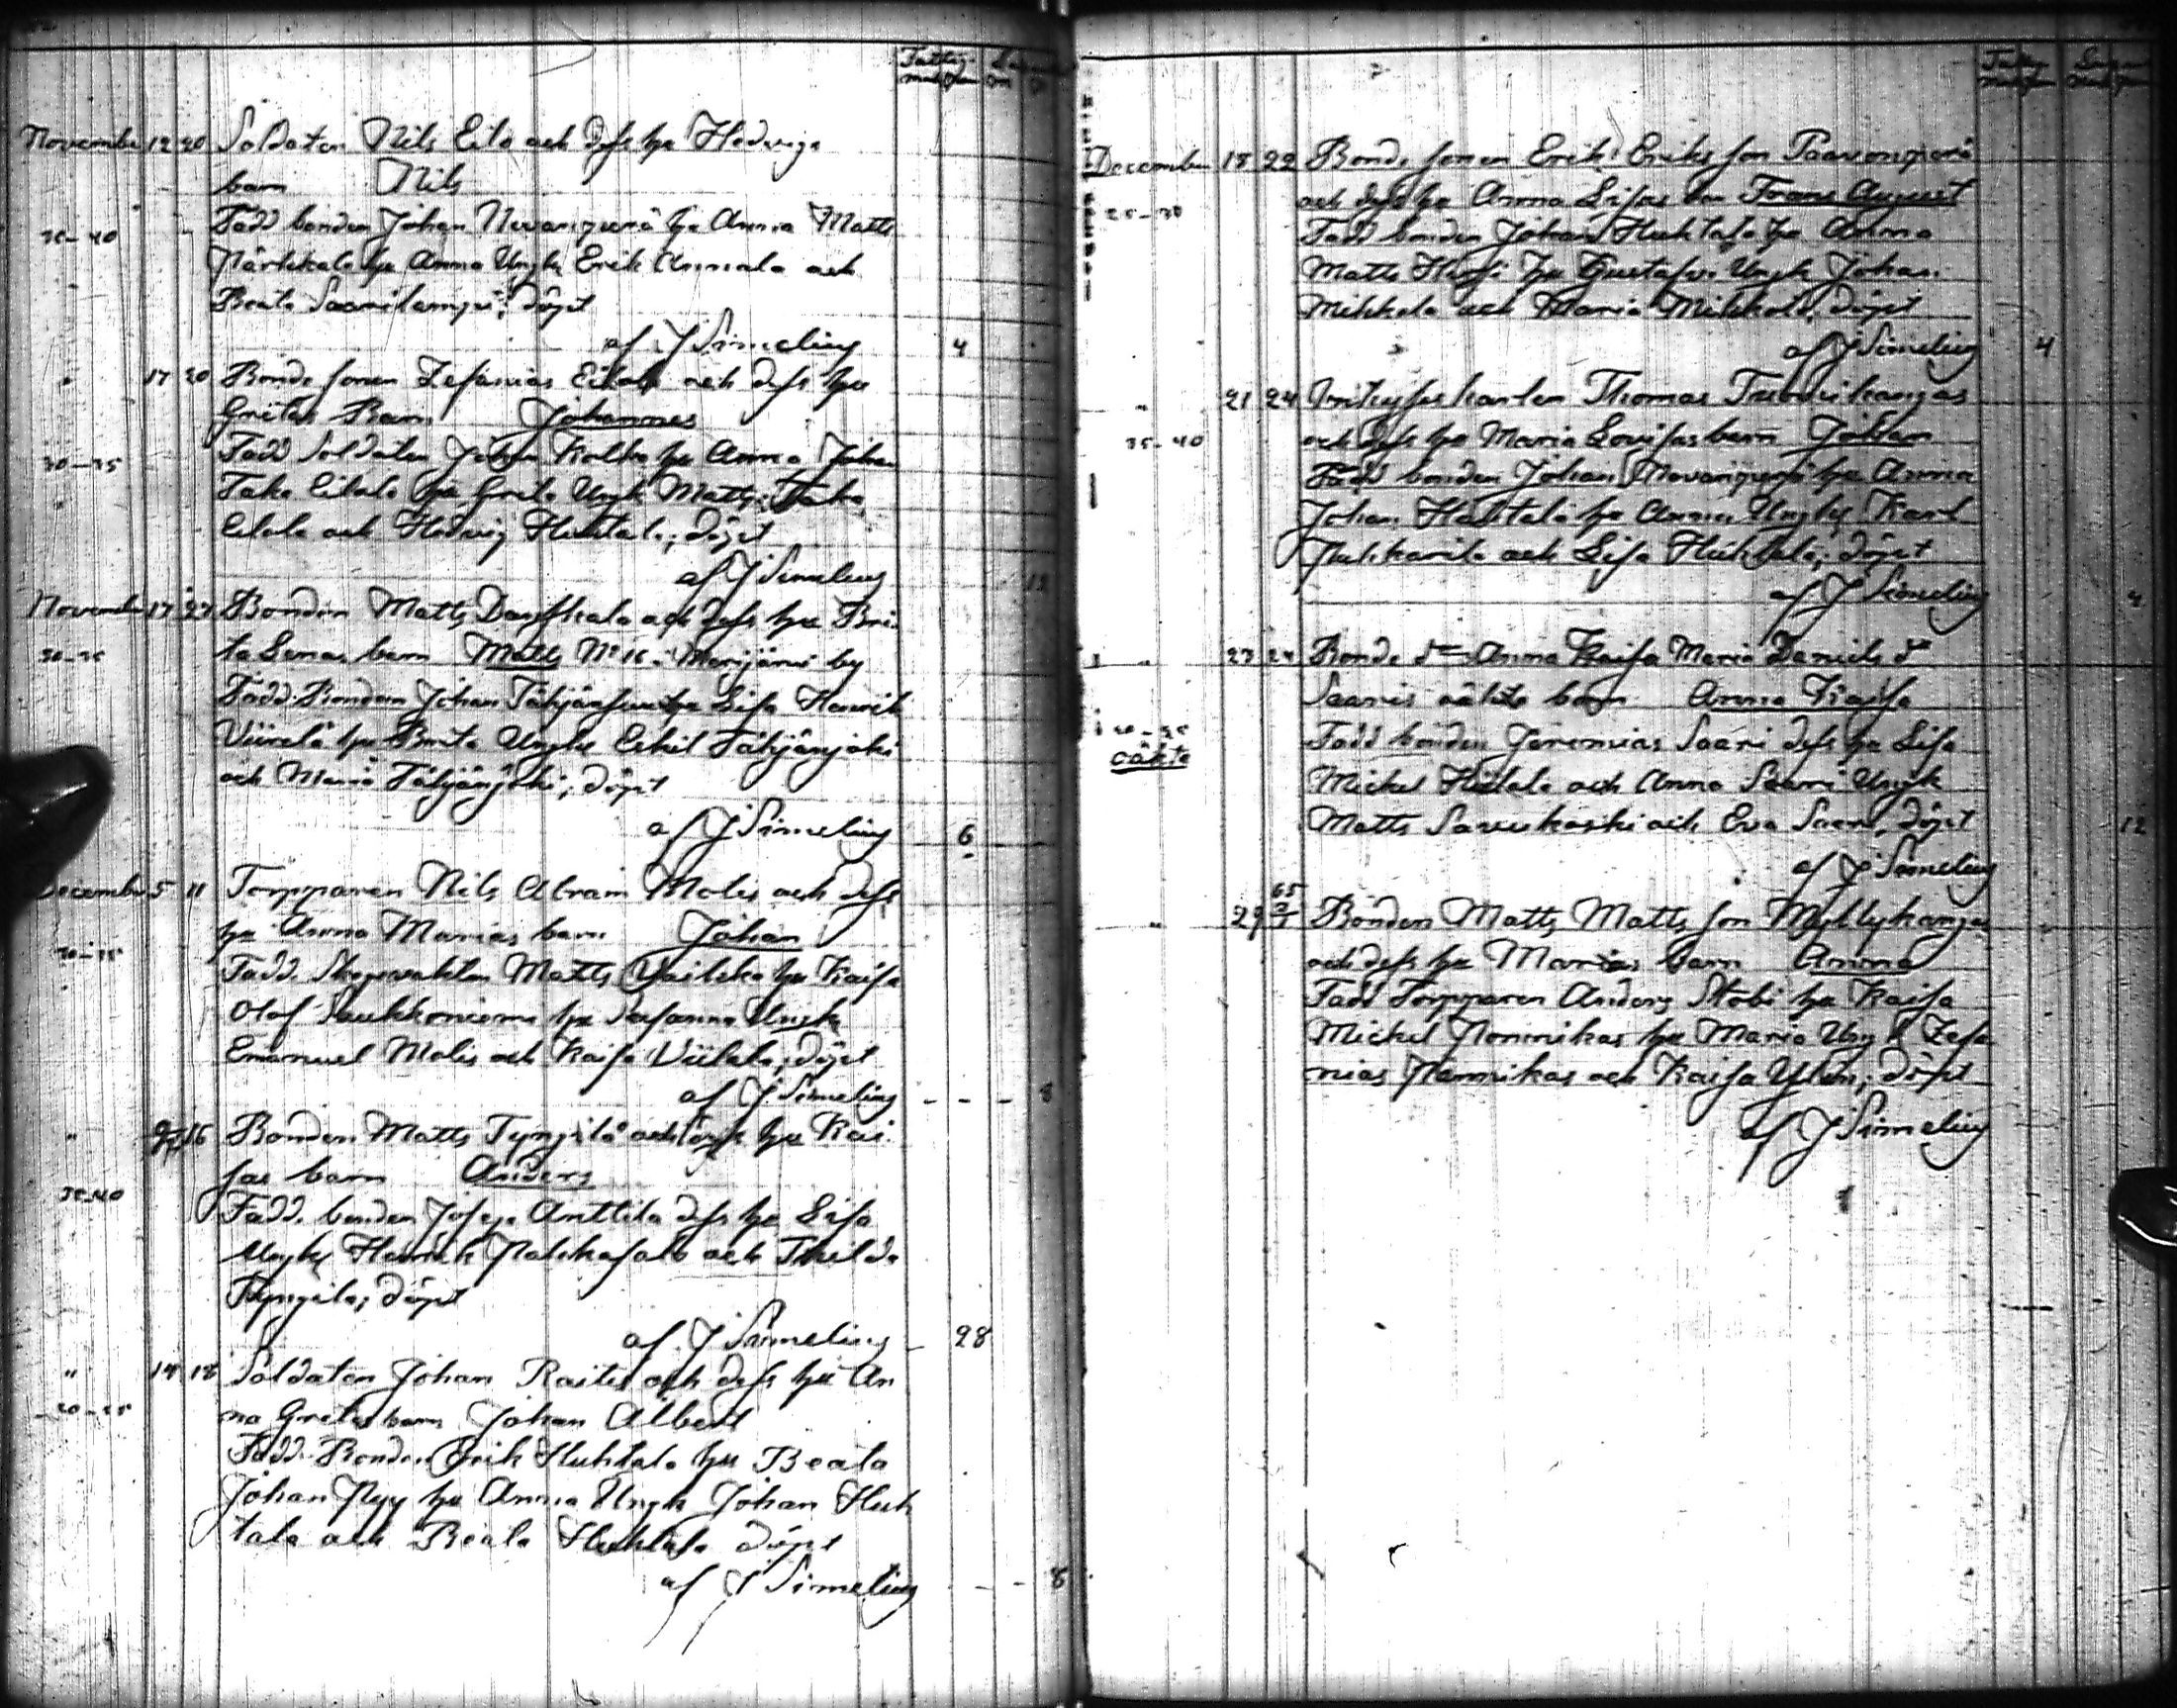 November 12 20 Soldaten Nils Eilo och dess hu Hedvigs
barn Nils
35-40 Fadd bonden Johan Nevanperä hu Anna Matts
Pärkkälä hu Anna Ungk Erik Annala och
Beata Saarilampi; döpt
af J Simelius 4
" 17 20 Bonde sonen Zefanias Eilola och dess hu
Gretas Barn Johannes
30-35 Fadd Soldaten Johan Kolka hu Anna Johan
Take Eilola hu Greta Ungk Matts Take
Eilola och Hedvig Huhtala; döpt
af J Simelius 12
November 17 27 Bonden Matts och dess hu Bri-
30-35 ta Lenas barn Matts No 16. by
Fadd. Bonden Johan hu Lisa Henrik
Viirelä hu Brita Ungke Eskil Tähjänjoki
och Maria Tähjänjoki; döpt
af J Simelius 6
December 5 11 Torpparen Nils Abram Molis och dess
hu Anna Marias barn Johan
30-35 Fadd. Skogvakten Matts hu Kaisa
Olof Saukkoniemi hu Susanna Ungk
Emanuel Molis och Kaisa Viitala; döpt
af J Simelius 8
" 16 Bonden Matts Tyngilä och dess hu Kai-
sas barn Anders
35-40 Fadd. bonden Josep Anttila dess hu Lisa
Ungke Henrik Palokasalo och Thilda
Tyngilä; döpt
af J Simelius 28
" 14 18 Soldaten Johan Raito och dess hu An
20-25 na Gretas barn Johan Albert
Fadd. Bonden Erik Huhtala hu Beata
Johan Pyy hu Anna Ungk Johan Huh
tala och Beata Huhtala döpt
af J Simelius 8
December 18 22 Bonde sonen Erik Eriksson Paavonperä
25-30 och dess hu Anna Lisas bn Frans August
Fadd bonden Johan Huhtala hu Anna
Matts hu Gustafva Ungk Johan
Mikkola och Maria Mikkola, döpt
af J Simelius 4
" 21 24 Thomas
35-40 och dess hu Maria Lovisas barn Johan
Fadd bonden Johan Nevanperä hu Anna
Johan Huhtala hu Anna Ungke Karl
och Lisa Huhtala; döpt
af J Simelius 4
" 23 24 Bonde dr Anna Kaisa Maria Daniels dr
Saaris oäkta barn Anna Kaisa
30-35 Fadd bonden Jeremias Saari dess hu Lisa
oäkta Mickel och Anna Saari Ungk
Matts Savukoski och Eva Saari, döpt 12
af J Simelius
" 29 65 Bonden Matts Matts son Myllykangas
och dess hu Marias barn Anna
Fadd Torpparen Anders Stobi hu Kaisa
Mickel Nonnikas hu Maria Ungk Zefa
nias Nonnikas och Kaisa; döpt
af J Simelius